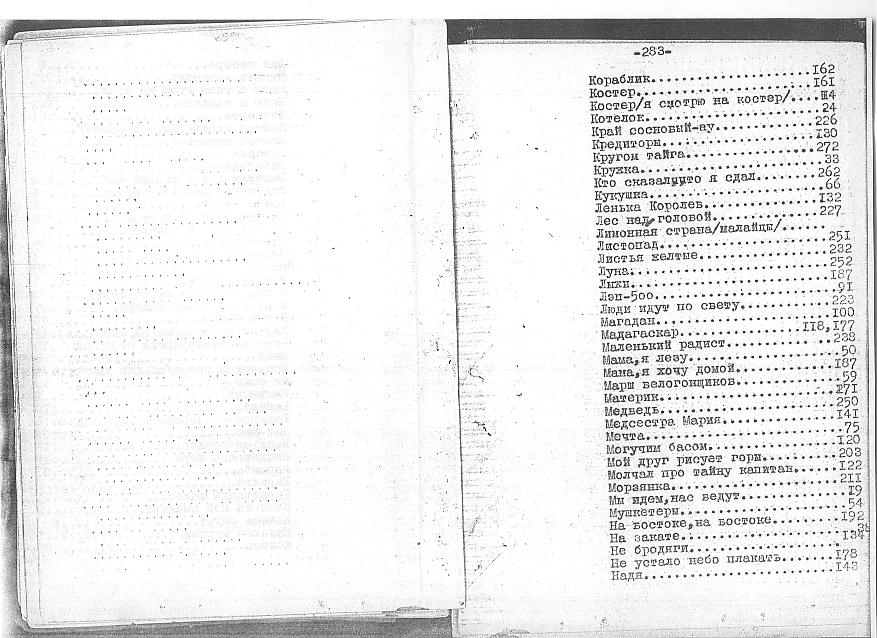 -283-
Кораблик....................I62
Костер......................I6I
Костер/я смотрю на костер/....Ш4
Котелок.....................24
Край сосновый-ау............226
Кредиторы...................I30
Кругом тайга................272
Кружка......................33
Кто сказал,что я сдал.......262
Кукушка.....................66
Ленька Королев..............I32
Лес над головой.............227
Лимонная страна/малайцы/......
Листопад....................25I
Листья желтые...............232
Луна........................252
Лыжи........................I87
Лэп-5оо.....................9I
Люди идут по свету..........223
Магадан.....................I00
Мадагаскар..................II8,I77
Маленький радист............238
Мама,я лезу.................50
Мама,я хочу домой...........I87
Марш велогонщиков...........59
Материк.....................I7I
Медведь.....................250
Медсестра Мария.............I4I
Мечта.......................75
Могучим басом...............I20
Мой друг рисует горы........203
Молчал про тайну капитан....I22
Морзянка....................2II
Мы идем,нас ведут...........I9
Мушкетеры...................54
На востоке,на востоке.......I92
На закате...................38
Не бродяги..................I34
Не устало небо плакать......I78
Надя........................I43